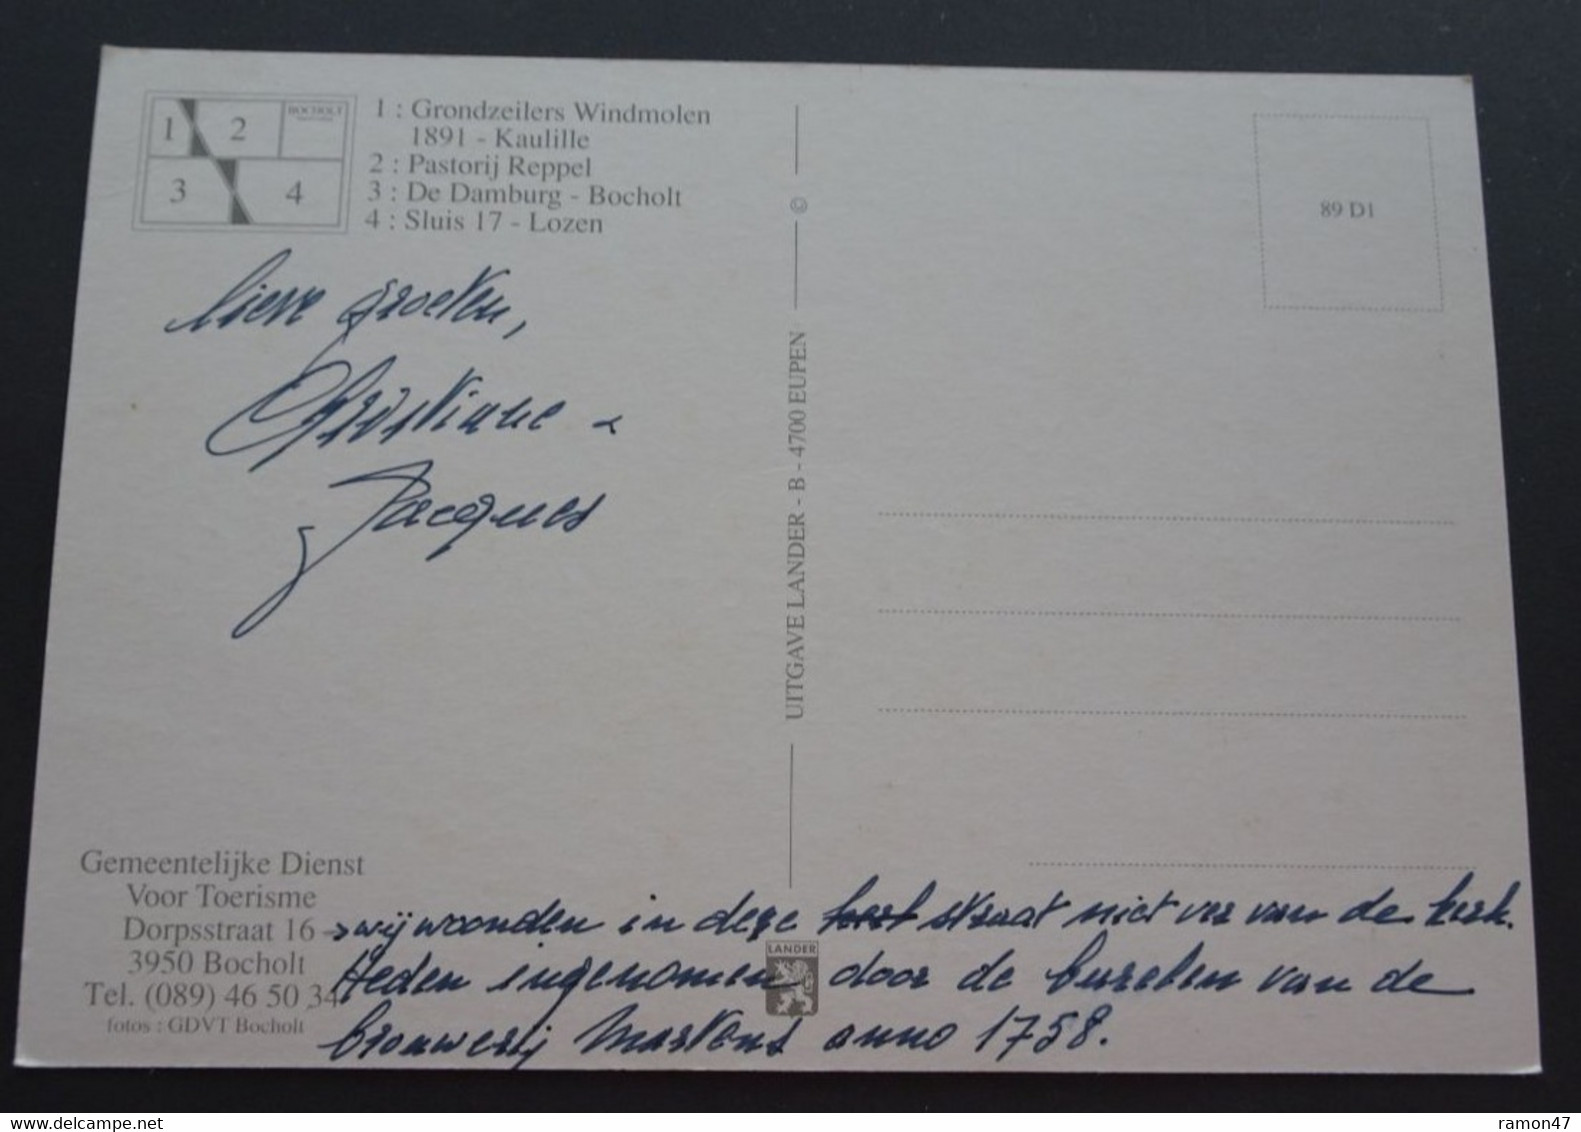 1 2 BOCHOLT
3 4
1 : Grondzeilers Windmolen
1891 - Kaulille
2 : Pastorij Reppel
3 : De Damburg - Bocholt
4 : Sluis 17 - Lozen
89 D1
lieve groeten,
Christiane -
Jacques
UITGAVE LANDER - B - 4700 EUPEN ©
Gemeentelijke Dienst
Voor Toerisme
Dorpsstraat 16
3950 Bocholt
Tel. (089) 46 50 34
fotos : GDVT Bocholt
LANDER
wij woonden in deze straat niet ver van de kerk.
Heden ingenomen door de burelen van de
brouwerij Martens anno 1758.
delcampe.net
ramon47